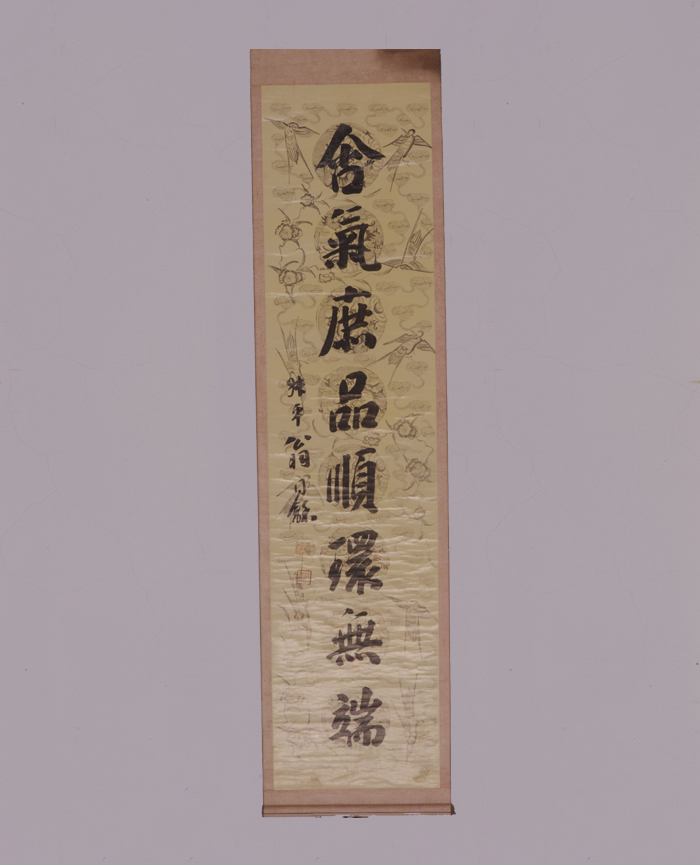 含氣庶品順環無端
叔平翁同龢